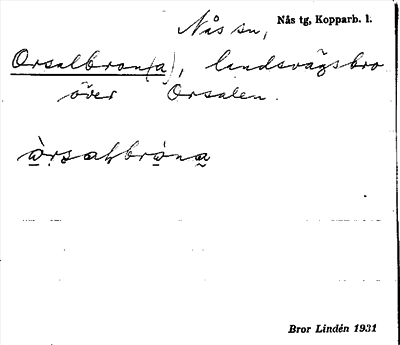 Nås sn,
Nås tg, Kopparb. l.
Orsalbron(a), landsvägsbro
över Orsalen.
Bror Lindén 1931